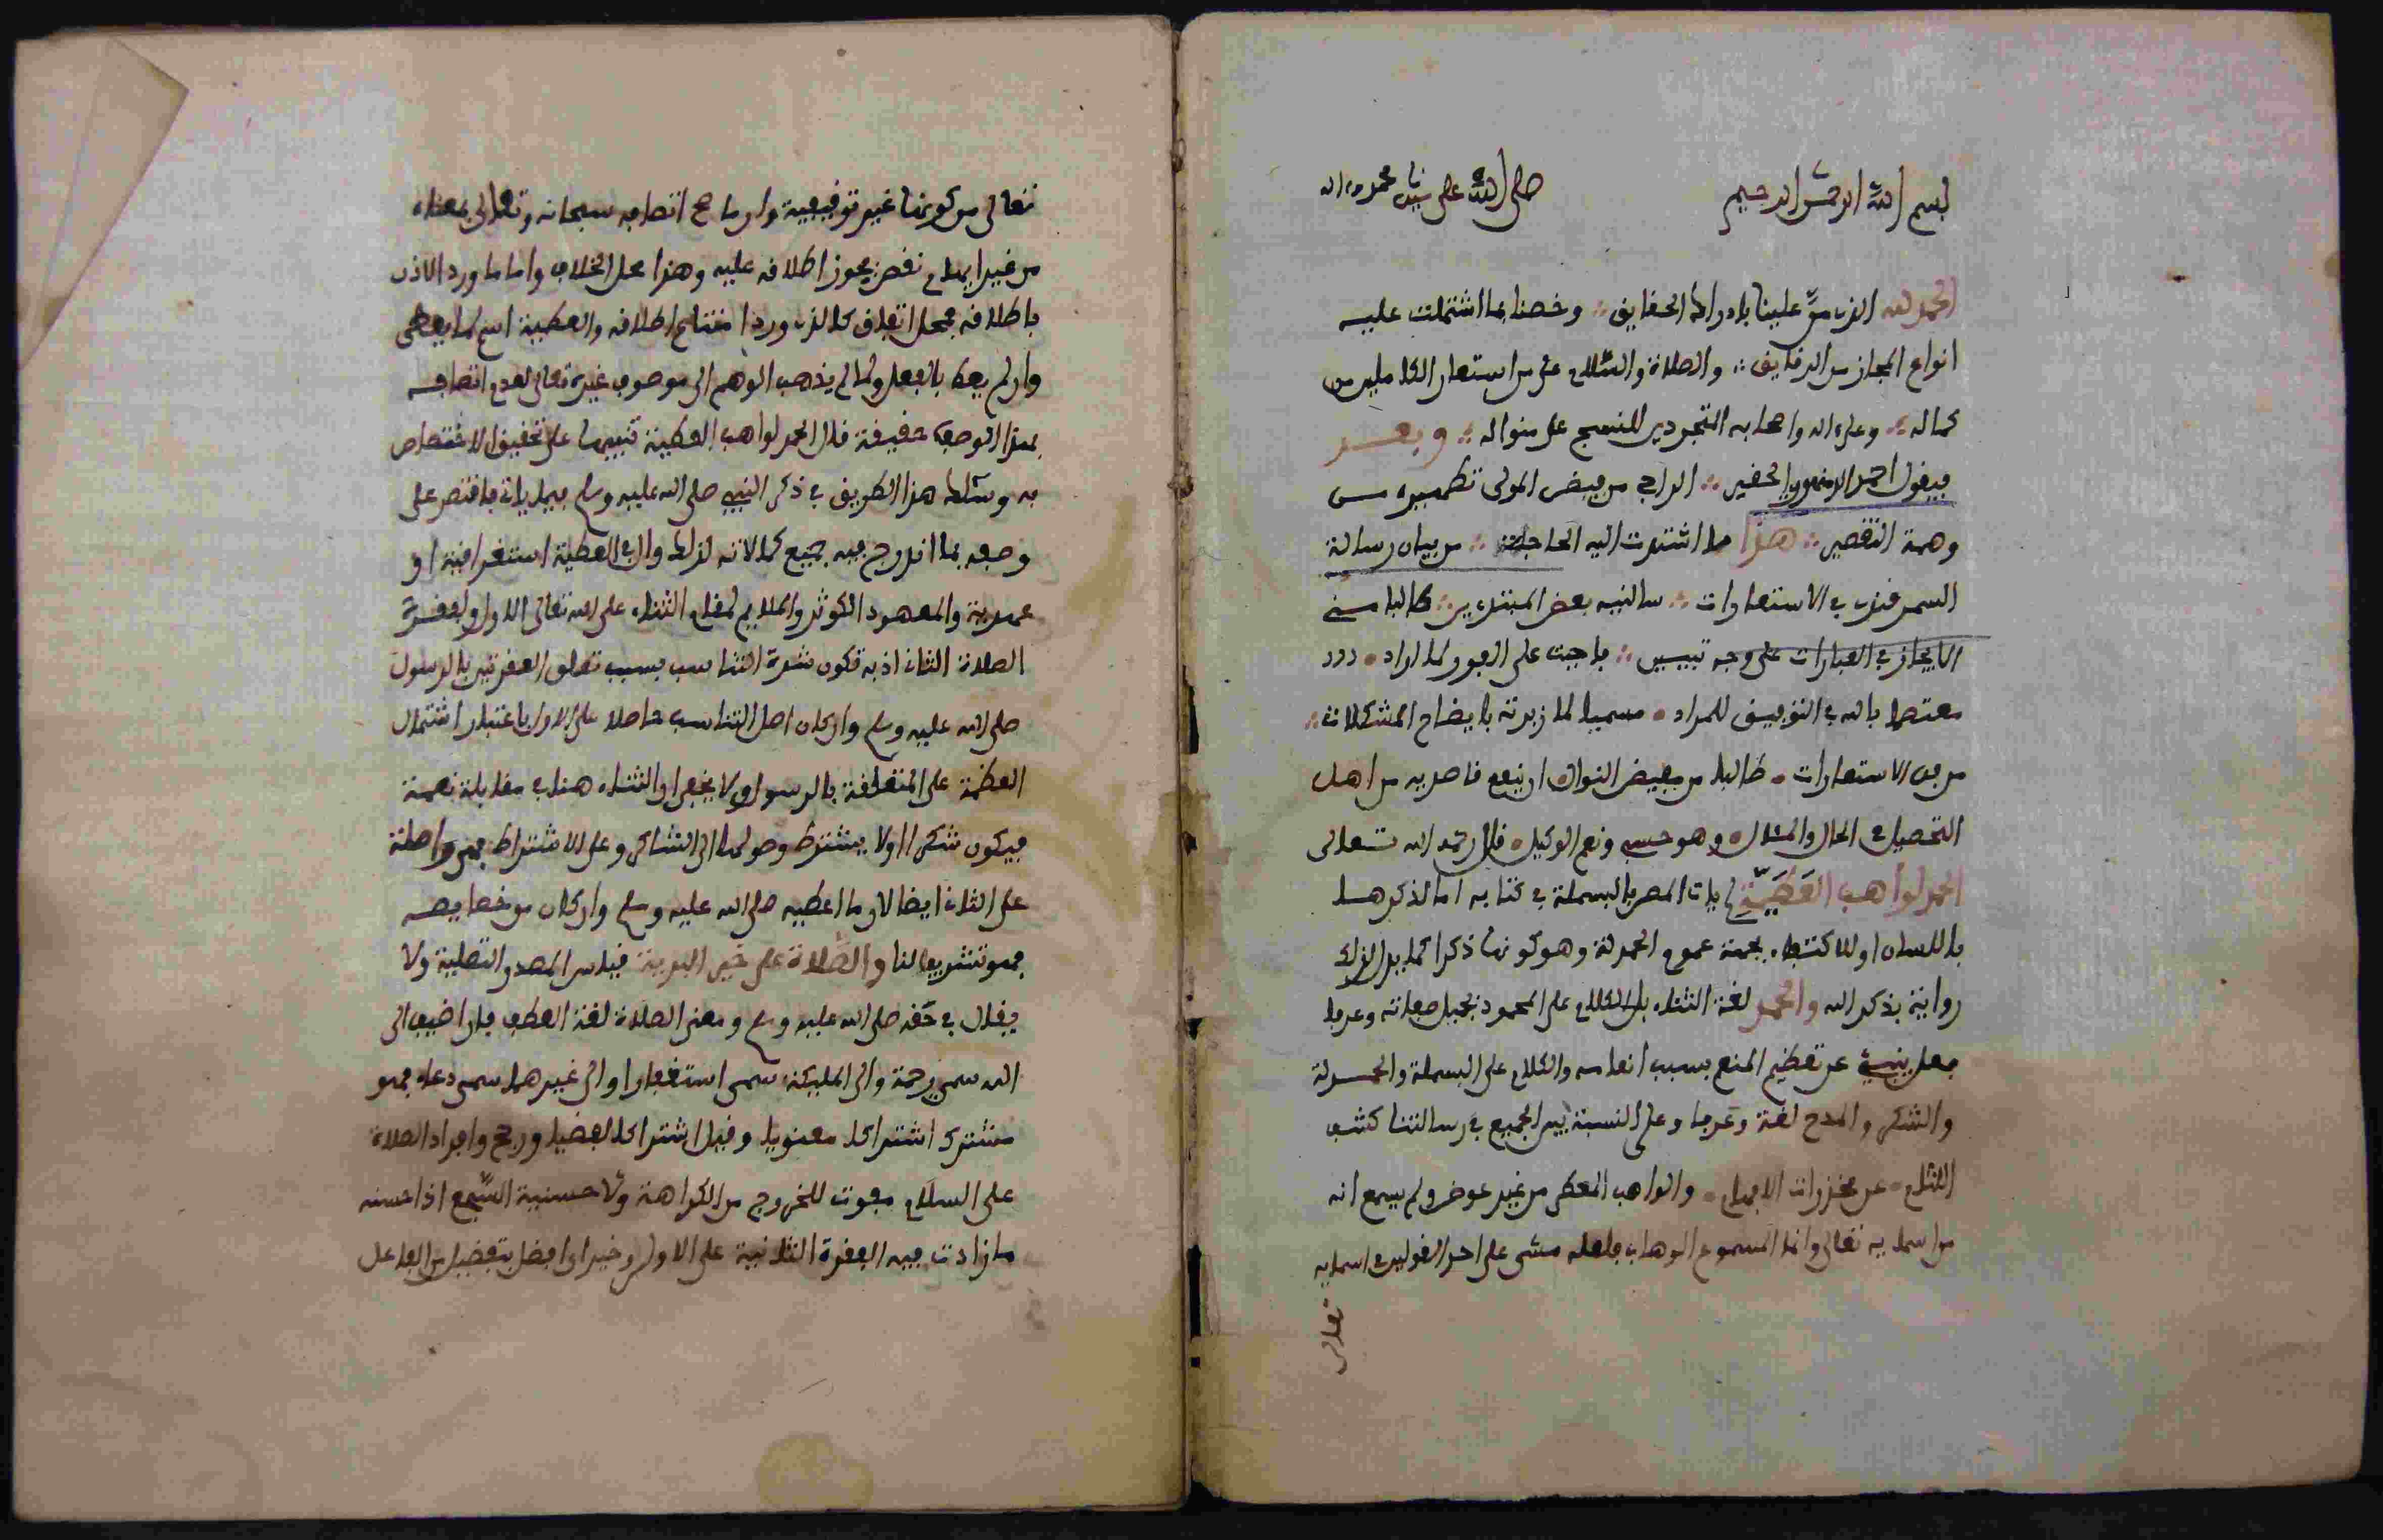 بسم الله الرحمن الرحيم صلى الله على سيدنا محمد وءاله
الحمد لله الذي من علينا بادراك الحقايق وخصنا بما اشتملت عليه
انواع المجاز من الدقايق والصلاة والسلام على من استعار الكاملين من
كماله وعلى اله واصحابه المتجردين للنسج على منواله وبعد
فيقول احمد الدمنهوري الحقير الراجي من فيض المولى تطهيره من
وصمة التقصير هذا ما اشتدت اليه الحاجات من بيان رسالة
السمرقندي في الاستعارات سالنيه بعض المبتدءين طالبا مني
الايجاز في العبارات على وجه تبيين فاجبت على الفور لما اراد
معتصما بالله في التوفيق للمراد مسميا لما زبرته بايضاح المشكلات
من متن الاستعارات طالبا من مفيض النوال ان ينفع قاصديه من اهل
التحصيل في الحال والمئال وهو حسبي ونعم الوكيل قال رحمه الله تعالى
الحمد لواهب العطية لم يات المص بالبسملة في كتابه اما لذكرها
باللسان او للاكتفاء بجهة عموم الحمدلة وهو كونها ذكرا كما يدل لذلك
رواية بذكر الله والحمد لغة الثناء بالكلام على المحمود بجميل صفاته وعرفا
فعل ينبئ عن تعظيم المنعم بسبب انعامه والكلام على البسملة والحمدلة
والشكر والمدح لغة وعرفا وعلى النسبة بين الجميع في رسالتنا كشف
اللثام عن مخدرات الافهام والواهب المعطي من غير عوض ولم يسمع انه
من اسمايه تعالى وانما المسموع الوهاب فلعله مشى على احد القولين في اسمايه
تعالى
تعالى من كونها غير توقيفية وان ما صح اتصافه سبحانه وتعالى بمعناه
من غير ايهام نقص يجوز اطلاقه عليه وهذا محل الخلاف واما ما ورد الاذن
باطلاقه فمحل اتفاق كالذي ورد امتناع اطلاقه والعطية اسم لما يعطى
وان لم يعط بالفعل ولما لم يذهب الوهم الى موصوف غيره تعالى لعدم اتصافه
بهذا الوصف حقيقة قال الحمد لواهب العطية تنبيها على تحقيق الاختصاص
به وسلك هذا الطريق في ذكر النبي صلى الله عليه وسلم فيما ياتي فاقتصر على
وصفه بما اندرج فيه جميع كمالاته لذلك وال في العطية استغراقية او
عهدية والمعهود الكوثر والملايم لمقام الثناء على الله تعالى الاول ولفقرة
الصلاة الثاني اذ به تكون شدة التناسب بسبب تعلق الفقرتين بالرسول
صلى الله عليه وسلم وان كان اصل التناسب حاصلا على الاول باعتبار اشتمال
العطية على المتعلقة بالرسول ولا يخفى ان الثناء هنا في مقابلة نعمة
فيكون شكرا اولا يشترط وصولها الى الشاكر وعلى الاشتراط فهي واصلة
على الثاني ايضا لان ما اعطيه صلى الله عليه وسلم وان كان من خصايصه
فهو تشريف لنا والصلاة على خير البرية قياس المصدر التصلية ولا
يقال في حقه صلى الله عليه وسلم ومعنى الصلاة لغة العطف فان اضيف الى
الله سمي رحمة والى المليكة سمى استغفارا والى غيرهما سمى دعاء فهو
مشترك اشتراكا معنويا وقيل اشتراكا لفظيا ورجح وافراد الصلاة
على السلام مفوت للخروج من الكراهة ولاحسنية السجع اذ احسنه
ما زادت فيه الفقرة الثانية على الاولى وخير اي افضل بتفضيل من الفاعل